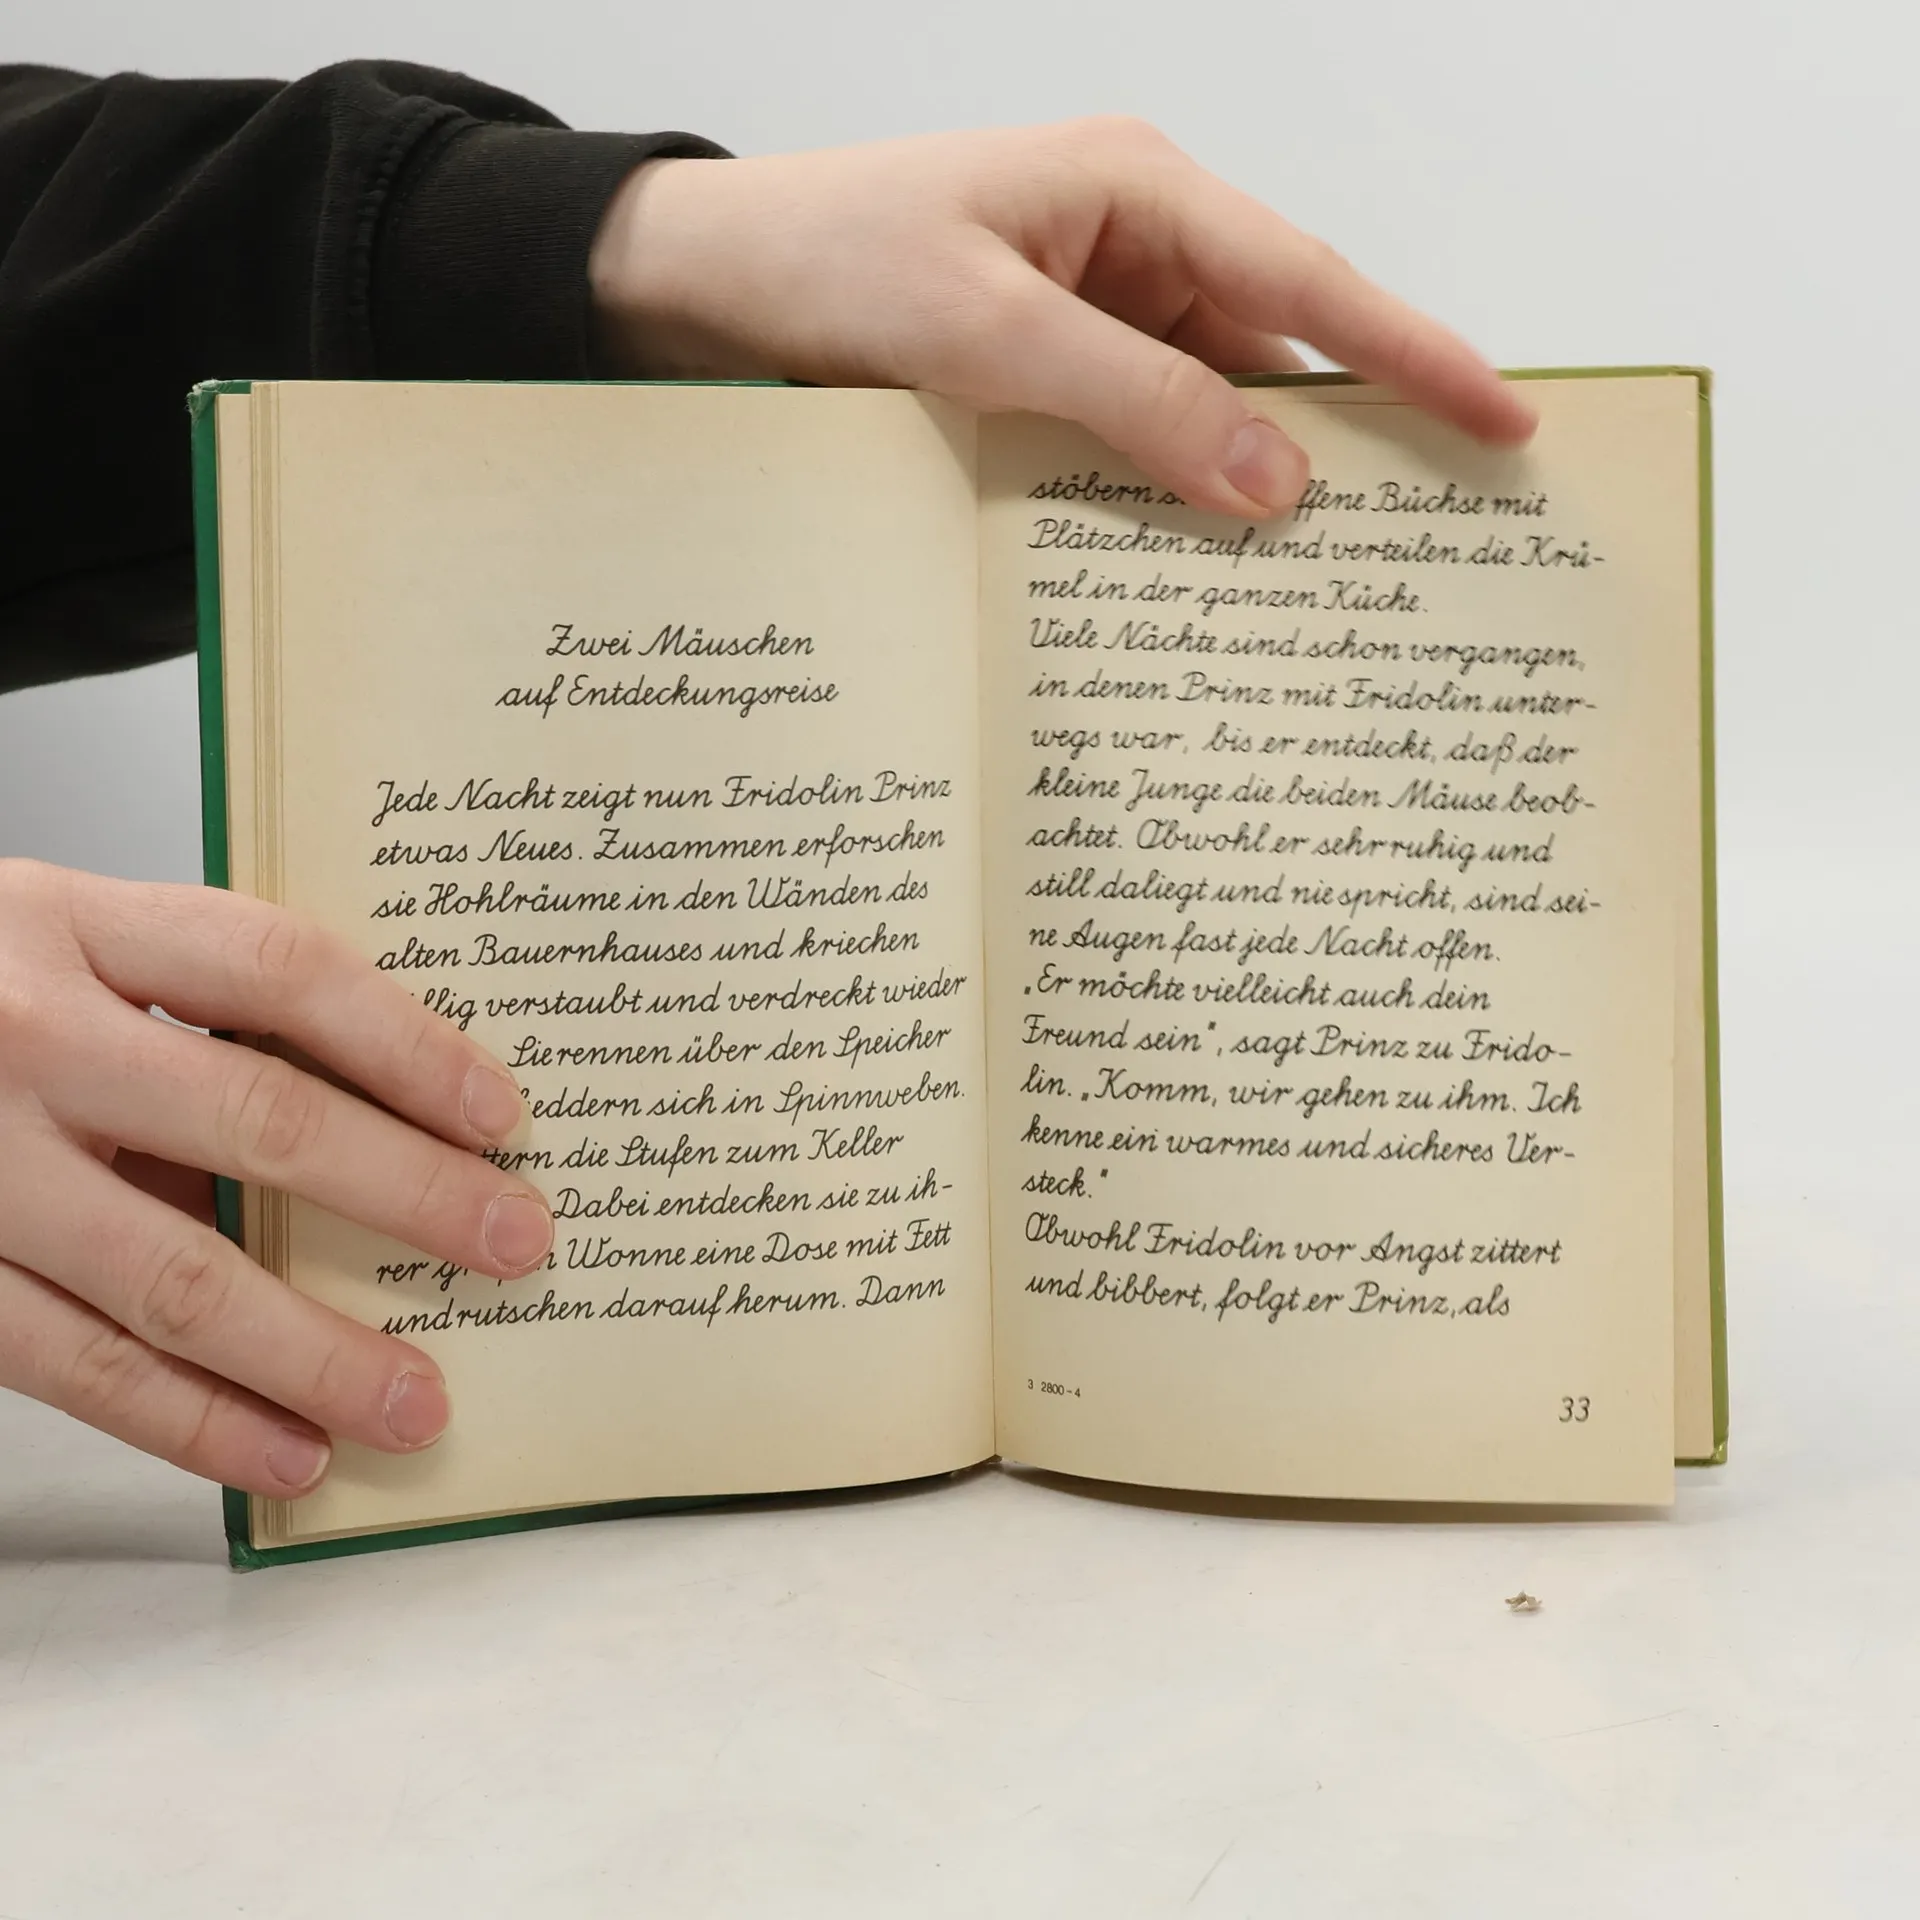 Zwei Mäuschen
auf Entdeckungsreise
Jede Nacht zeigt nun Fridolin Prinz
etwas Neues. Zusammen erforschen
sie Hohlräume in den Wänden des
alten Bauernhauses und kriechen
verstaubt und verdreckt wieder
Sie rennen über den Speicher
sich in Spinnweben.
die Stufen zum Keller
Dabei entdecken sie zu ih-
rer Wonne eine Dose mit Fett
und rutschen darauf herum. Dann
stöbern Büchse mit
Plätzchen auf und verteilen die Krü-
mel in der ganzen Küche.
Viele Nächte sind schon vergangen,
in denen Prinz mit Fridolin unter-
wegs war, bis er entdeckt, daß der
kleine Junge die beiden Mäuse beob-
achtet. Obwohl er sehr ruhig und
still daliegt und nie spricht, sind sei-
ne Augen fast jede Nacht offen.
„Er möchte vielleicht auch dein
Freund sein", sagt Prinz zu Frido-
lin. „Komm, wir gehen zu ihm. Ich
kenne ein warmes und sicheres Ver-
steck."
Obwohl Fridolin vor Angst zittert
und bibbert, folgt er Prinz, als
3 2800-4
33